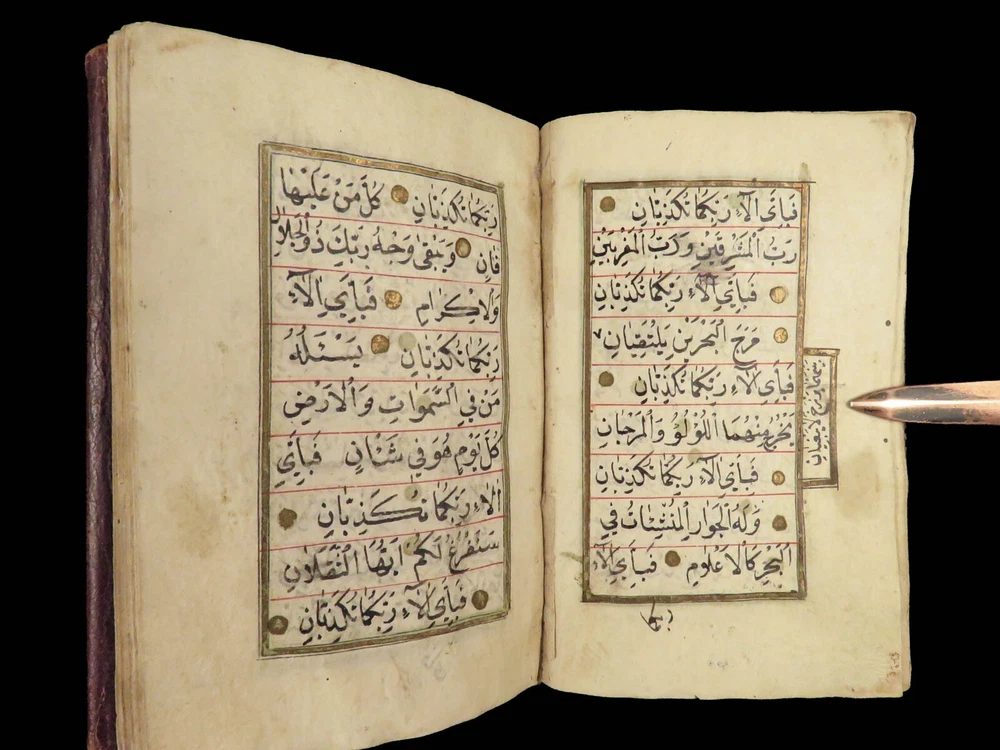 فَبِاَىِّ اٰلَاۤءِ رَبِّكُمَا تُكَذِّبَانِ
رَبُّ الْمَشْرِقَيْنِ وَرَبُّ الْمَغْرِبَيْنِ
فَبِاَىِّ اٰلَاۤءِ رَبِّكُمَا تُكَذِّبَانِ
مَرَجَ الْبَحْرَيْنِ يَلْتَقِيَانِ
بينهما برزخ لا يبغيان
فَبِاَىِّ اٰلَاۤءِ رَبِّكُمَا تُكَذِّبَانِ
يَخْرُجُ مِنْهُمَا اللُّؤْلُؤُ وَالْمَرْجَانِ
فَبِاَىِّ اٰلَاۤءِ رَبِّكُمَا تُكَذِّبَانِ
وَلَهُ الْجَوَارِ الْمُنْشَئَاتُ فِي
الْبَحْرِ كَالْاَعْلَامِ فَبِاَىِّ اٰلَاۤءِ
رَبِّكُمَا تُكَذِّبَانِ كُلُّ مَنْ عَلَيْهَا
فَانٍ وَيَبْقٰى وَجْهُ رَبِّكَ ذُو الْجَلَالِ
وَالْاِكْرَامِ فَبِاَىِّ اٰلَاۤءِ
رَبِّكُمَا تُكَذِّبَانِ يَسْئَلُهُ
مَنْ فِي السَّمٰوَاتِ وَالْاَرْضِ
كُلَّ يَوْمٍ هُوَ فِي شَاْنٍ فَبِاَىِّ
اٰلَاۤءِ رَبِّكُمَا تُكَذِّبَانِ
سَنَفْرُغُ لَكُمْ اَيُّهَا الثَّقَلَانِ
فَبِاَىِّ اٰلَاۤءِ رَبِّكُمَا تُكَذِّبَانِ